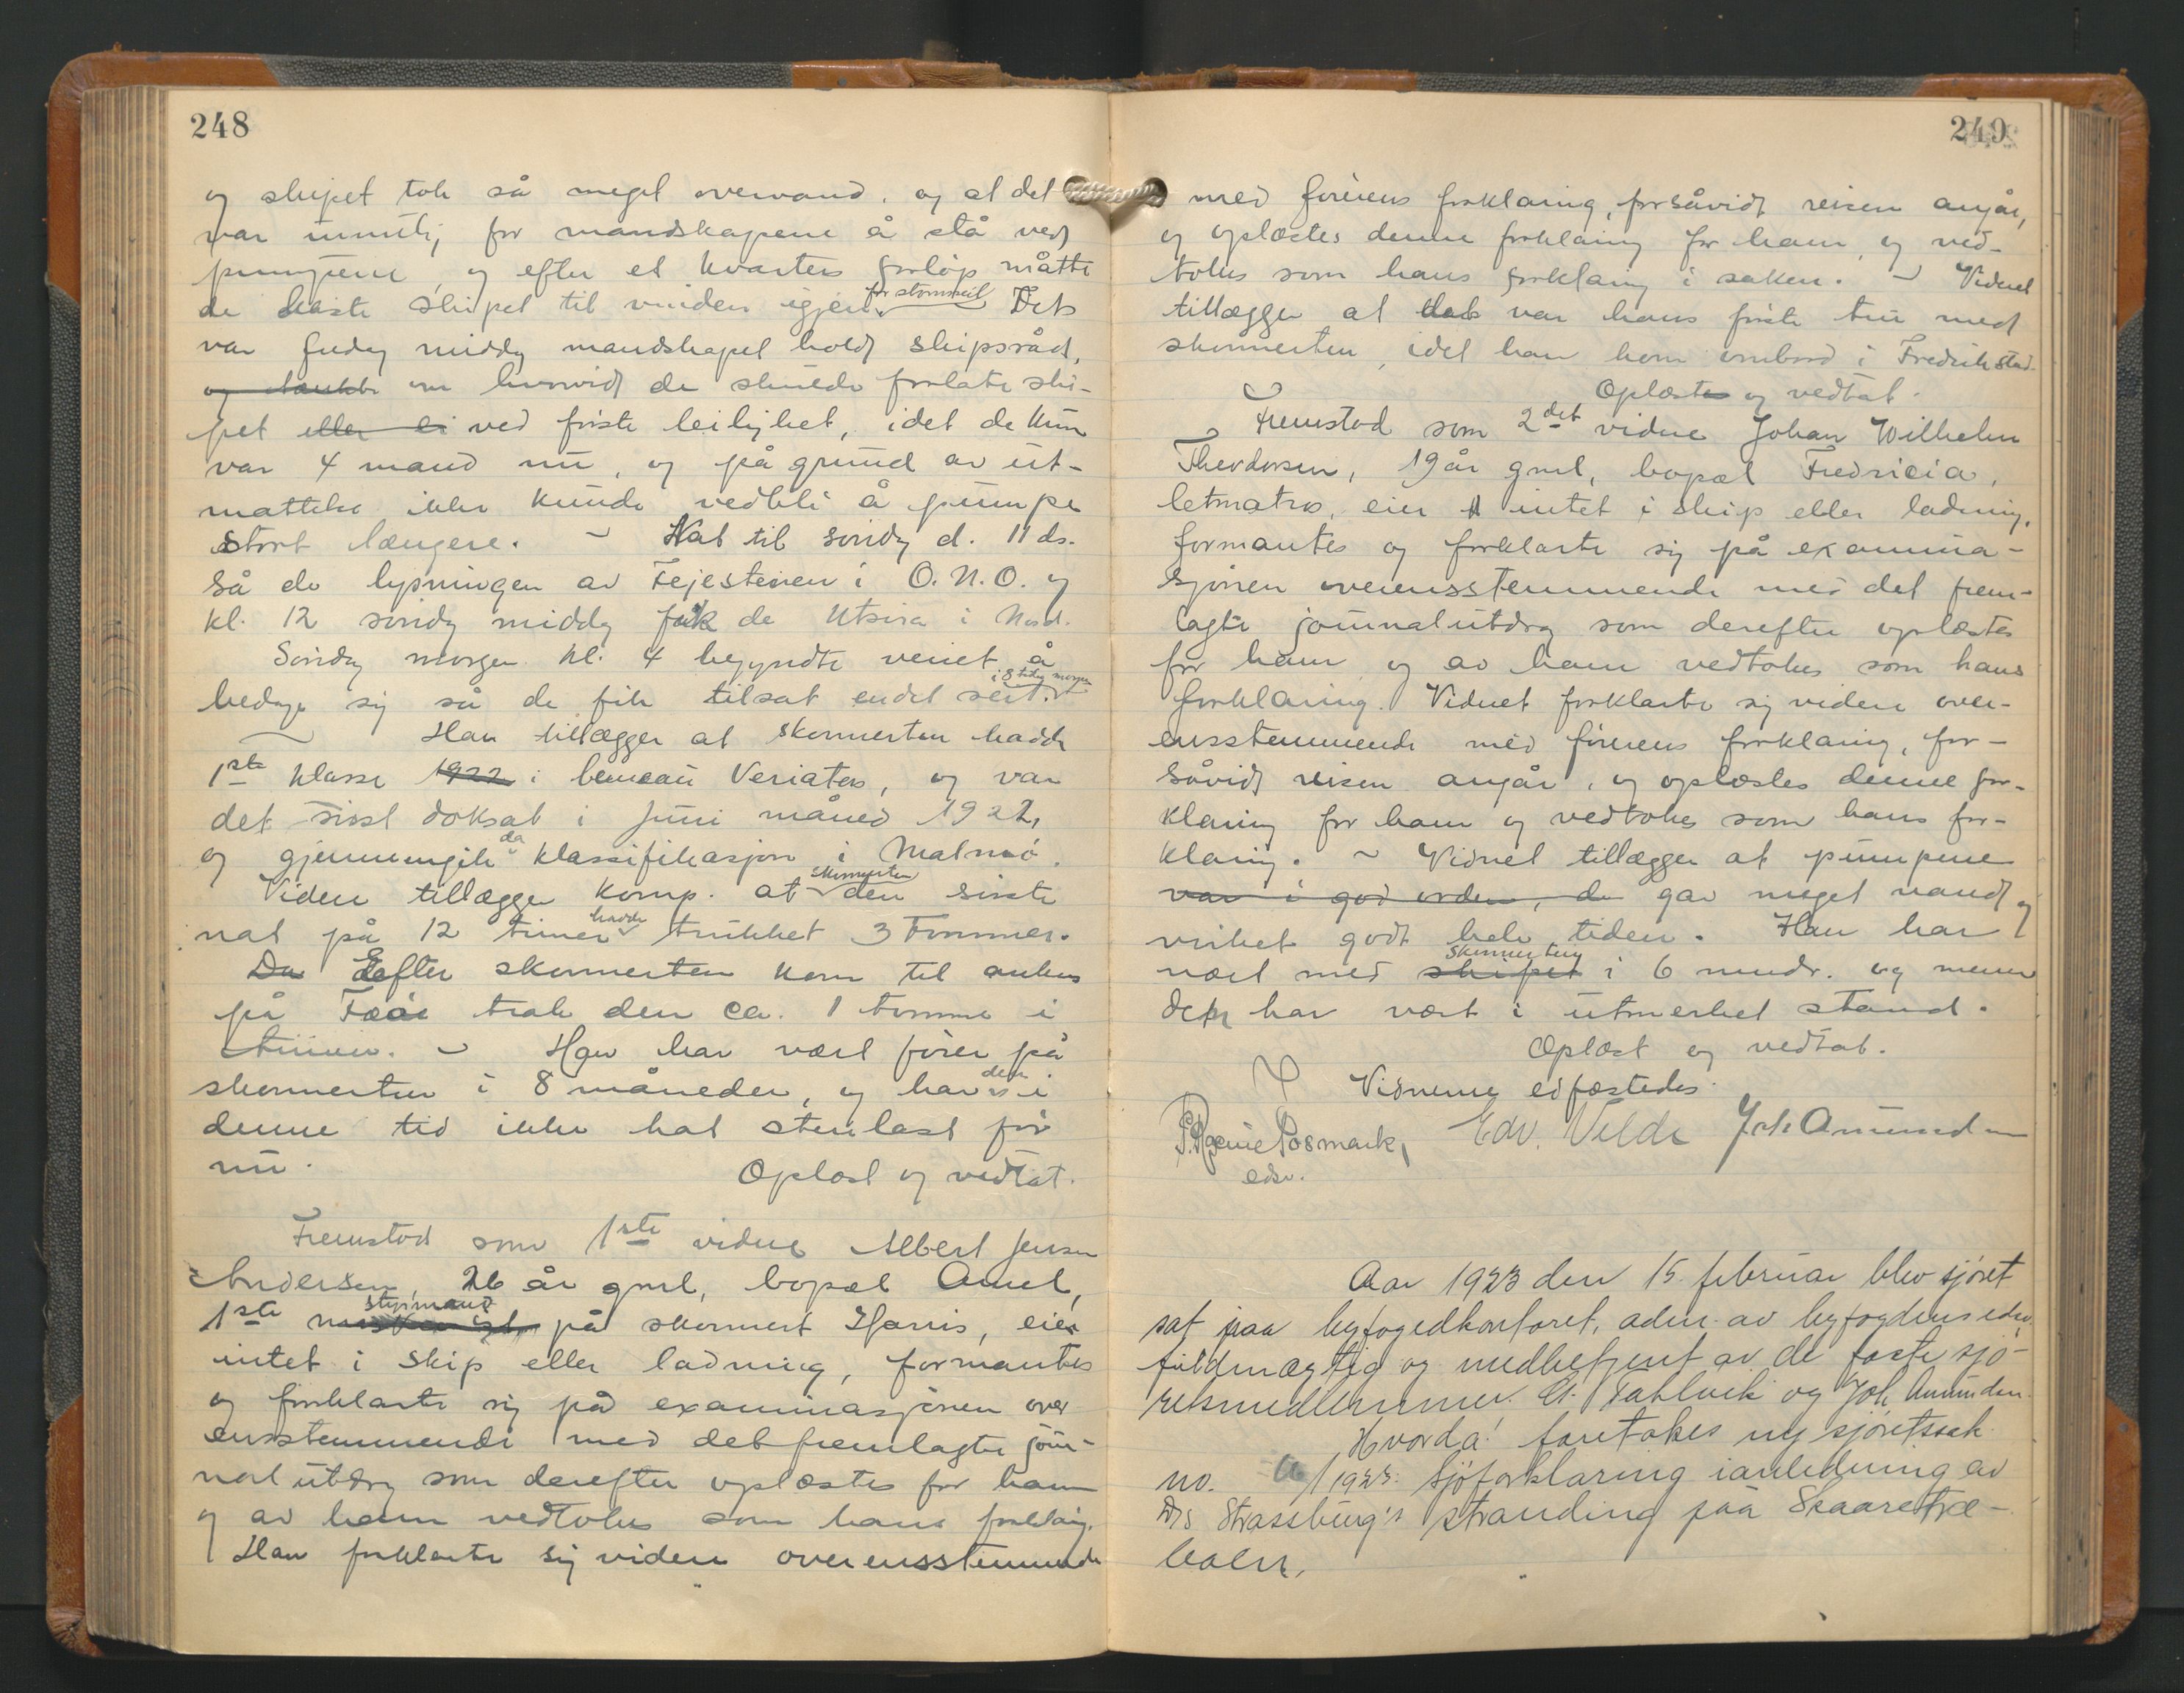 248
og skipet tok så meget overvand, og at det
var umulig for mandskapene å stå ved
pumpene, og efter et kvarters forløp måtte
de kaste skipet til vinden igjen for stormseil. Det
var fredag middag mandskapet holdt skipsråd,
og tænkte om hvorvidt de skulde forlate ski-
pet eller ei ved første leilighet, idet de kun
var 4 mand nu, og på grund av ut-
mattelse ikke kunde vedbli å pumpe
stort længere. - Nat til søndag d. 11 ds.
så de lysningen av Fejesteinen i O.N.O. og
kl. 12 søndag middag fik de Utsira i Nord.
Søndag morgen kl. 4 begyndte veiret å
bedage sig så de fik tilsat endel seil. i 8 tiden morgen
Han tillægger at skonnerten hadde
1ste klasse 1922 i bureau Veriatas, og var
det sist doksat i juni måned 1922,
og gjennemgik da klassifikasjon i Malmø.
Videre tillægger komp. at skonnerten den siste
nat på 12 timer hadde trukket 3 tommer.
Da Efter skonnerten kom til ankers
på Feøi trak den ca. 1 tomme i
timen. - Han har vært fører på
skonnerten i 8 måneder, og har den i
denne tid ikke hat stenlast før
nu.
Oplæst og vedtat.
Fremstod som 1ste vidne Albert Jensen
Andersen, 26 år gml, bopæl Amel,
1ste styrmand på skonnert Harris, eier
intet i skip eller ladning, formantes
og forklarte sig på examinasjonen over
ensstemmende med det fremlagte jour-
nalutdrag som derefter oplæstes for ham
og av ham vedtokes som hans forklaring.
Han forklarte sig videre overensstemmende
249
med førerens forklaring, forsåvidt reisen angår,
og oplæstes denne forklaring for ham, og ved-
tokes som hans forklaring i saken. - Vidnet
tillægger at det var hans første tur med
skonnerten, idet han kom ombord i Fredrikstad.
Oplæstes og vedtat.
Fremstod som 2det vidne Johan Wilhelm
Theodorsen, 19 år gml, bopæl Fredricia,
letmatros, eier intet i skip eller ladning,
formantes og forklarte sig på examina-
sjonen overensstemmende med det frem-
lagte journalutdrag som derefter oplæstes
for ham og av ham vedtokes som hans
forklaring. Vidnet forklarte sig videre over-
ensstemmende med førerens forklaring, for-
såvidt reisen angår, og oplæstes denne for-
klaring for ham og vedtokes som hans for-
klaring. - Vidnet tillægger at pumpene
var i god orden, de gav meget vand og
virket godt hele tiden. Han har
vært med skipet skonnerten i 6 mndr. og mener
den har vært i utmerket stand.
Oplæst og vedtat.
Vidnerne edfæstedes.
Posmark, Edv. Velde Joh Amundsen
edsv.
Aar 1923 den 15. februar blev sjøret
sat paa byfogedkontoret, adm. av byfogdens edsv.
fuldmægtig og medbetjent av de faste sjø-
retsmedlemmer. Joh. Amundsen.
Hvorda! foretokes ny sjøretssak
no. 6/1923: Sjøforklaring ianledning av
D/S Strassburg's stranding paa Skaaretræ-
boen.